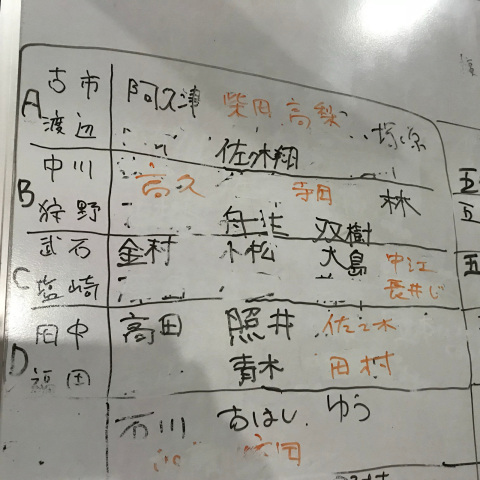 A 古市 阿久津 柴田 高梨
渡辺 佐々木翔
B 中川 高久 寺田 林
狩野 双樹
C 武石 金村 小松 大島 中江
塩崎 長井じ
D 田中 高田 照井 佐々木
福田 青木 田村
石川 おはし ゆう